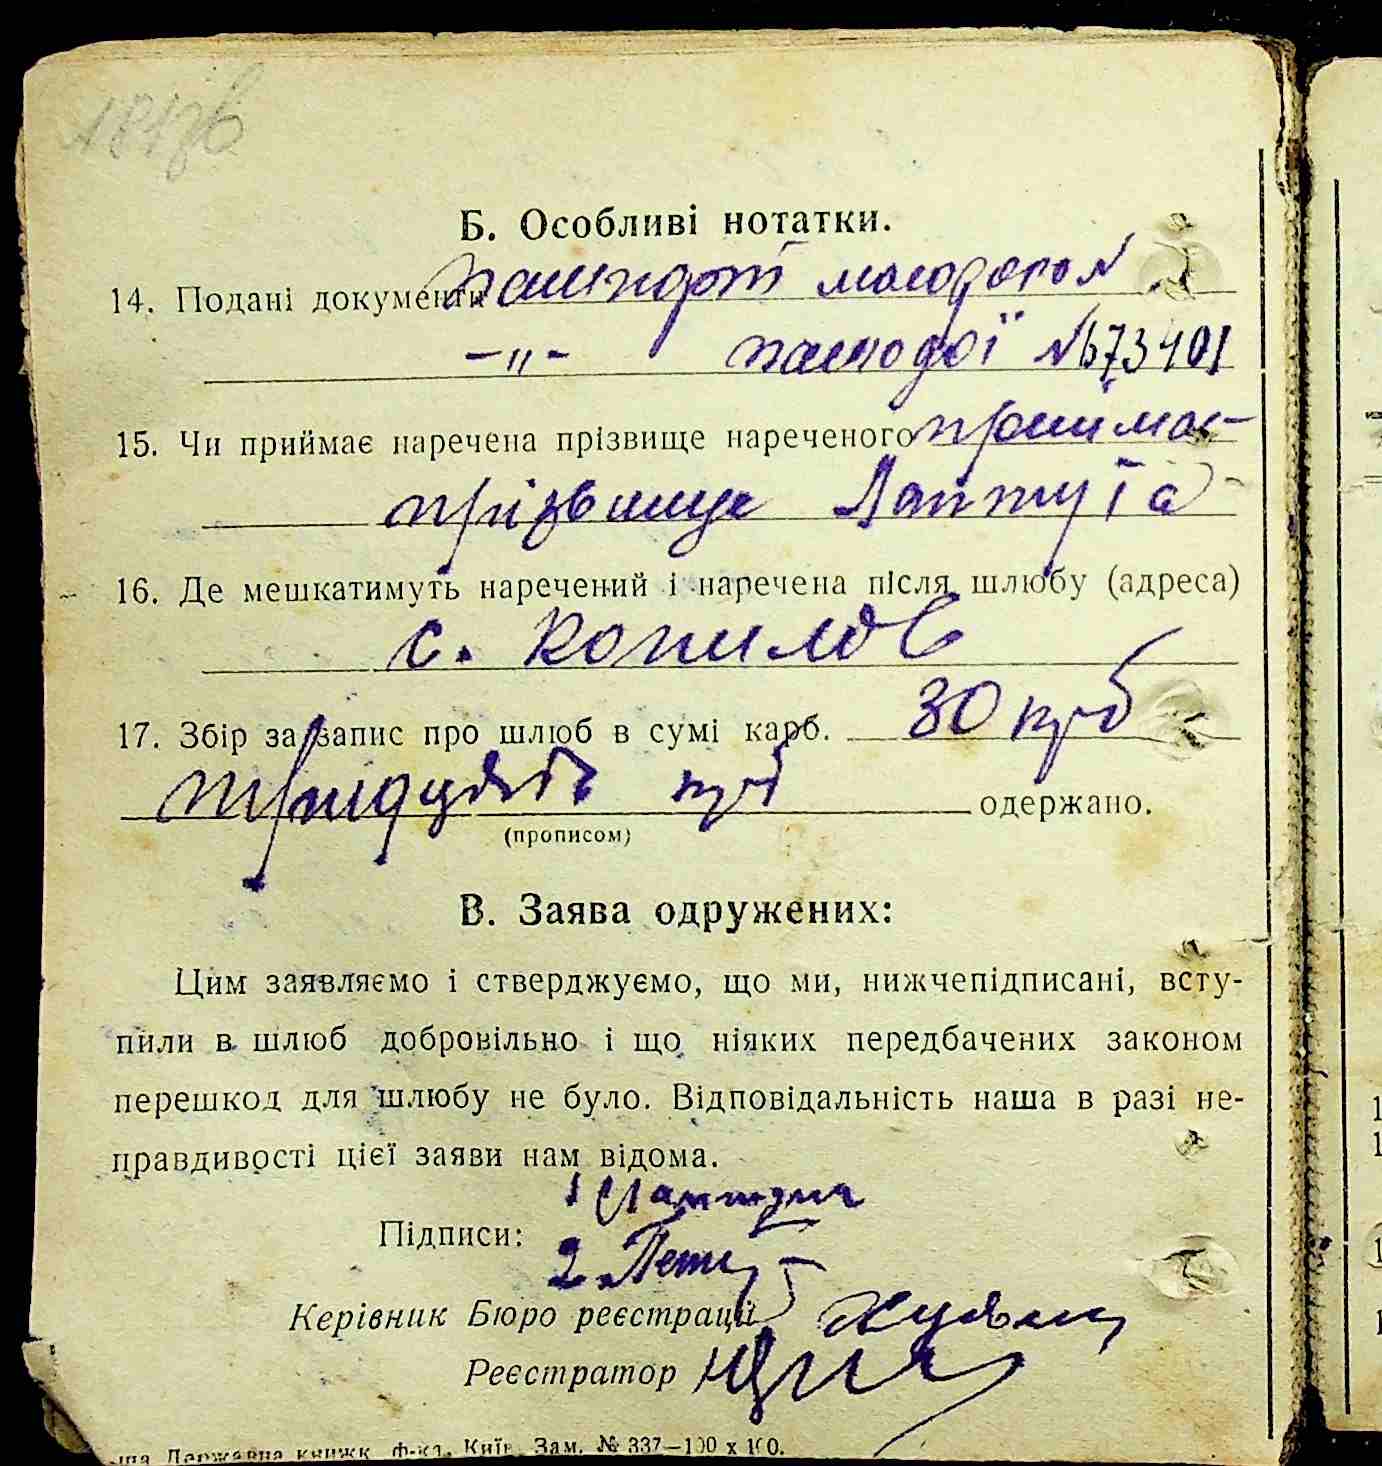 Б. Особливі нотатки.
14. Подані документи пашпорт молодого №
-"- молодої № 673401
15. Чи приймає наречена прізвище нареченого приймає
прізвище Лаптуга
16. Де мешкатимуть наречений і наречена після шлюбу (адреса)
с. Копилов
17. Збір за запис про шлюб в сумі карб. 30 крб
тридцять крб одержано.
(прописом)
В. Заява одружених:
Цим заявляємо і стверджуємо, що ми, нижчепідписані, всту-
пили в шлюб добровільно і що ніяких передбачених законом
перешкод для шлюбу не було. Відповідальність наша в разі не-
правдивості цієї заяви нам відома.
1
Підписи:
2
Керівник Бюро реєстрації
Реєстратор
Державна книжк. ф-ка, Київ. Зам. № 337—100 x 100.